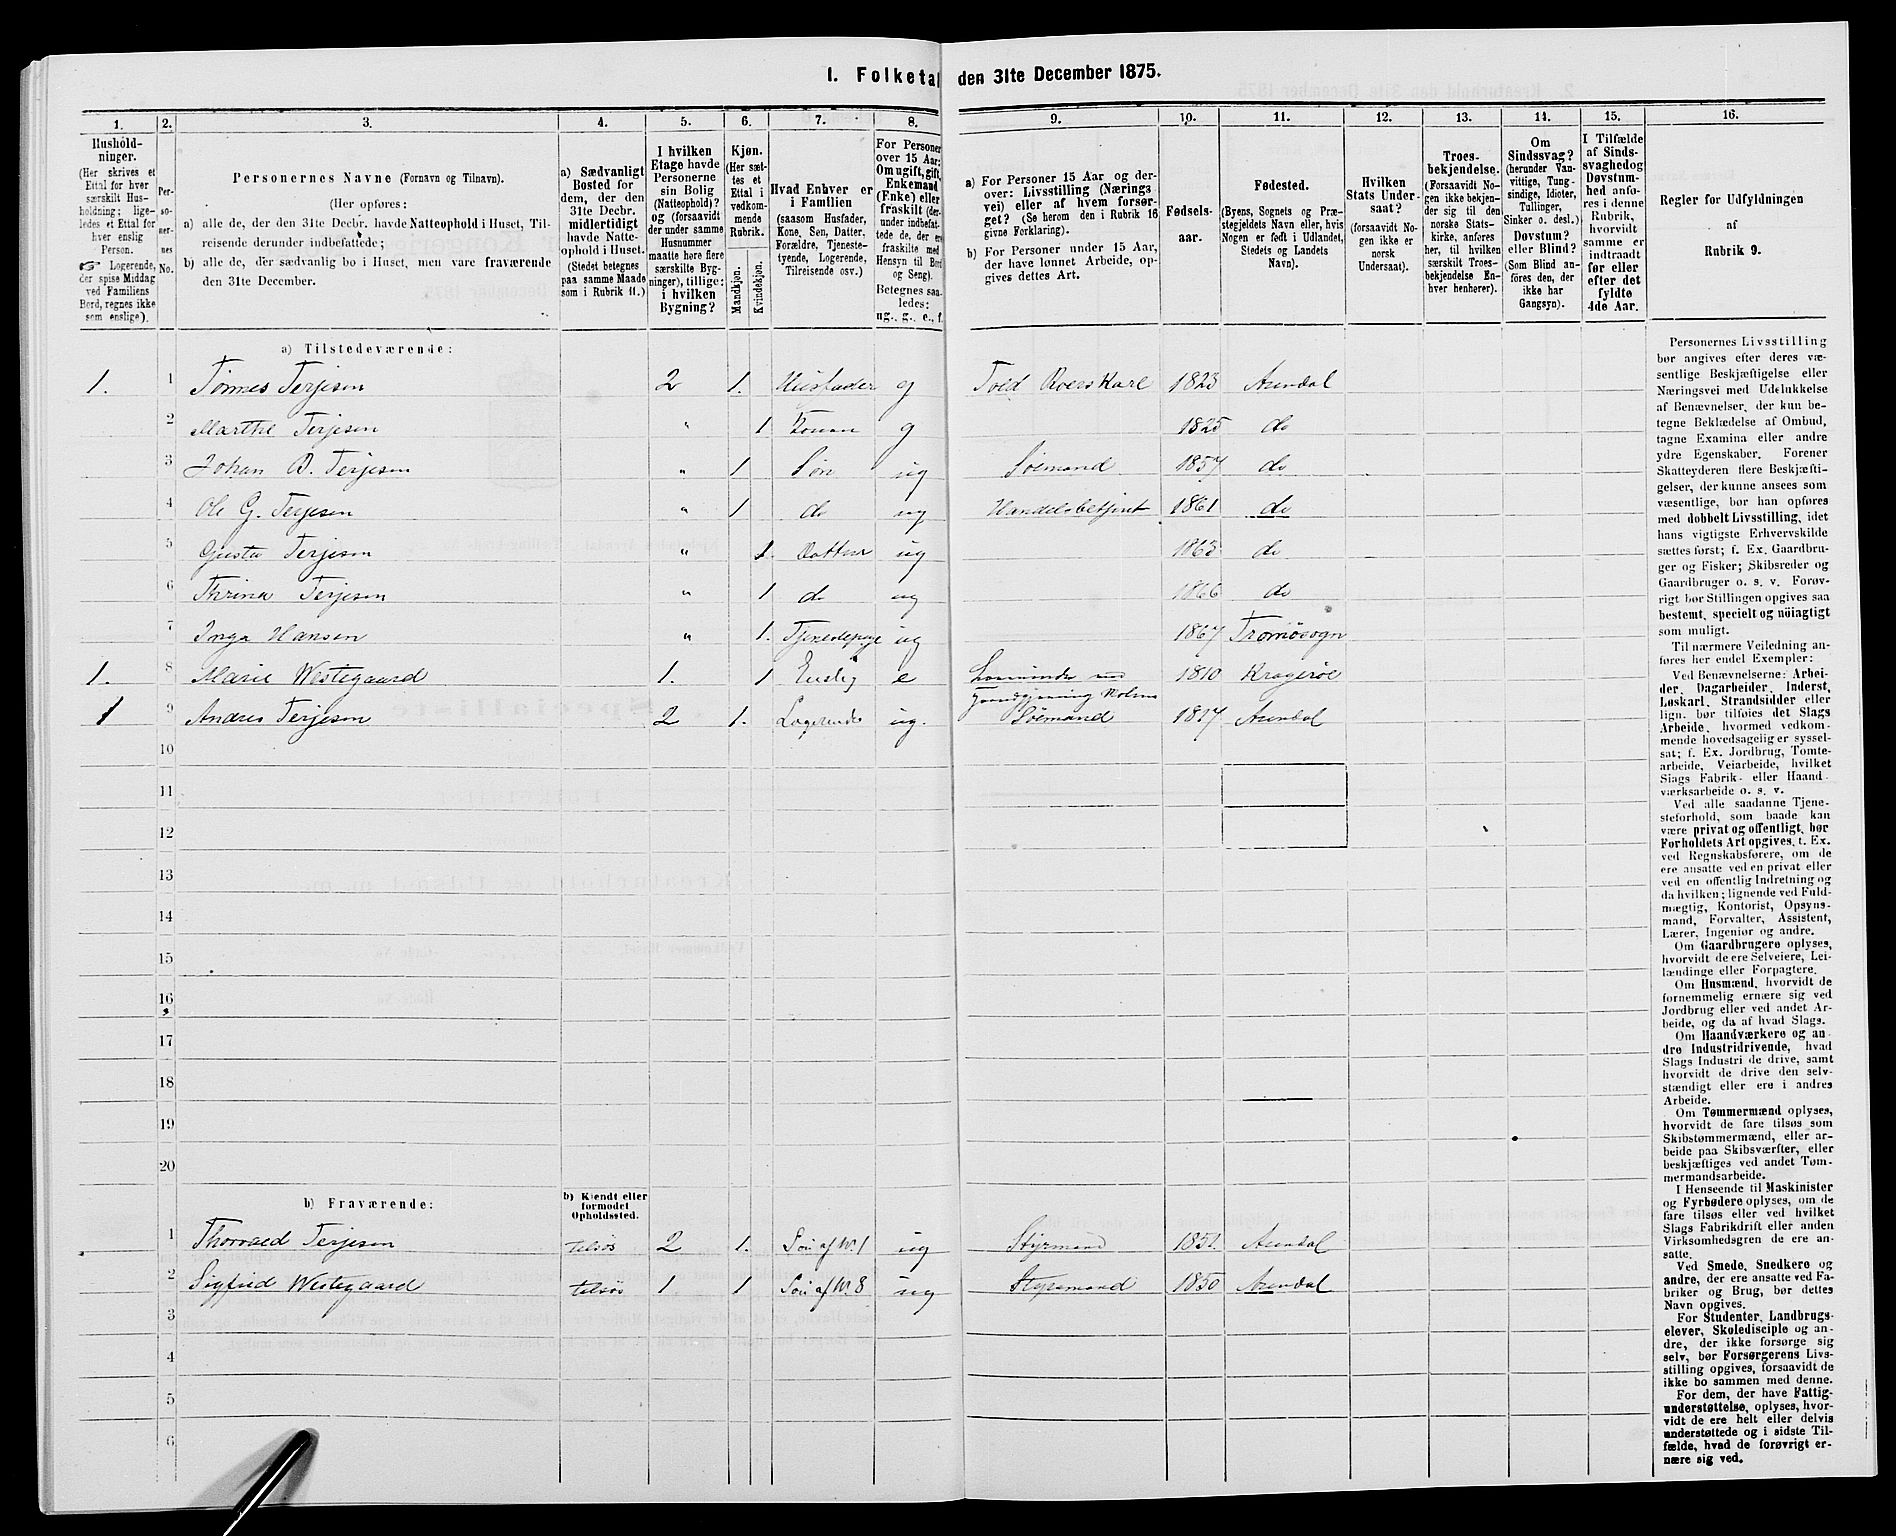 I. Folketal den 31te December 1875.
1.
2.
3.
4.
5.
6.
7.
8.
9.
10.
11.
12.
13.
14.
15.
16.
Hushold-
ninger.
(Her skrives et
Ettal for hver
særskilt Hus-
holdning; lige-
ledes et Ettal for
hver enslig
Person.
☞ Logerende,
der spise Middag
ved Familiens
Bord, regnes ikke
som enslige).
Per-
so-
ner-
nes
No.
Personernes Navne (Fornavn og Tilnavn).
(Her opføres:
a) alle de, der den 31te Decbr. havde Natteophold i Huset, Til-
reisende derunder indbefattede;
b) alle de, der sædvanlig bo i Huset, men vare fraværende
den 31te December.
a) Sædvanligt
Bosted for
dem, der den
31te Decbr.
midlertidigt
havde Natte-
ophold i Huset.
(Stedet betegnes
paa samme Maade
som i Rubrik 11.)
I hvilken
Etage havde
Personerne
sin Bolig
(Natteophold)?
og (forsaavidt
der under samme
Husnummer
maatte høre flere
særskilte Byg-
ninger), tillige:
i hvilken
Bygning?
Kjøn.
(Her sæt-
tes et
Ettal i
vedkom-
mende
Rubrik.
Mandkjøn.
Kvindekjøn.
Hvad Enhver er
i Familien
(saasom Husfader,
Kone, Søn, Datter,
Forældre, Tjeneste-
tyende, Logerende,
Tilreisende osv.)
For Personer
over 15 Aar:
Om ugift, gift,
Enkemand
(Enke) eller
fraskilt (der-
under indbefat-
tede de, der ere
fraskilte med
Hensyn til Bord
og Seng).
Betegnes saa-
ledes:
ug., g., e., f.
a) For Personer 15 Aar og der-
over: Livsstilling (Nærings-
vei) eller af hvem forsør-
get? (Se herom den i Rubrik 16
givne Forklaring).
b) For Personer under 15 Aar,
der have lønnet Arbeide, op-
gives dettes Art.
Fødsels-
aar.
Fødested.
(Byens, Sognets og Præ-
stegjeldets Navn eller, hvis
Nogen er født i Udlandet,
Stedets og Landets
Navn).
Hvilken
Stats Under-
saat?
(forsaavidt No-
gen ikke er
norsk
Undersaat).
Troes-
bekjendelse.
(Forsaavidt No-
gen ikke bekjen-
der sig til den
norske Stats-
kirke, anføres
her, til hvilken
særskilt Troes-
bekjendelse En-
hver henhører).
Om
Sindssvag?
(herunder Van-
vittige, Tung-
sindige, Idioter,
Tullinger,
Sinker o. desl.)
Døvstum?
eller Blind?
(Som Blind an-
føres den, der
ikke har
Gangsyn).
I Tilfælde
af Sinds-
svaghed og
Døvstum-
hed anfø-
res i denne
Rubrik,
hvorvidt
samme er
indtraadt
før eller
efter det
fyldte
4de Aar.
Regler for Udfyldningen
af
Rubrik 9.
a) Tilstedeværende:
1. 1 Tønnes Terjesen 2 1. Husfader g Told Roerskarl 1823 Arendal
2 Marthe Terjesen " 1 Konen g 1825 do
3 Johan B. Terjesen " 1 Søn ug Sømand 1857 do
4 Ole G. Terjesen " 1 do ug Handelsbetjent 1861 do
5 Gusta Terjesen " 1. Datter ug 1863 do
6 Thrina Terjesen " 1 do ug 1866 do
7 Inga Hansen " 1. Tjenedepige ug 1867 Tromøsogn
1. 8 Marie Westegaard 1. 1 Enslig e 1810 Kragerøe
1 9 Andres Terjesen 2 1. Logerende ug. Søemand 1817 Arendal
10
11
12
13
14
15
16
17
18
19
20
b) Fraværende:
b) Kjendt eller
formodet
Opholdssted.
1 Thorvald Terjesen tilsøs 2 1. Søn af No. 1 ug Styrmand 1851. Arendal
2 Sigfried Westegaard tilsøs 1 1 Søn af No. 8 ug Styrmand 1850 Arendal
3
4
5
6
Personernes Livsstilling
bør angives efter deres væ-
sentlige Beskjæftigelse eller
Næringsvei med Udelukkelse
af Benævnelser, der kun be-
tegne Beklædelse af Ombud,
tagne Examina eller andre
ydre Egenskaber. Forener
Skatteyderen flere Beskjæfti-
gelser, der kunne ansees som
væsentlige, bør han opføres
med dobbelt Livsstilling, idet
hans vigtigste Erhvervskilde
sættes først; f. Ex. Gaardbru-
ger og Fisker; Skibsreder og
Gaardbruger o. s. v. Forøv-
rigt bør Stillingen opgives saa
bestemt, specielt og nöiagtigt
som muligt.
Til nærmere Veiledning an-
føres her endel Exempler:
Ved Benævnelserne: Arbei-
der, Dagarbeider, Inderst,
Løskarl, Strandsidder eller
lign. bør tilføies det Slags
Arbeide, hvormed vedkom-
mende hovedsagelig er syssel-
sat; f. Ex. Jordbrug, Tomte-
arbeide, Veiarbeide, hvilket
Slags Fabrik- eller Haand-
værksarbeide o. s. v.
Ved alle saadanne Tjene-
steforhold, som baade kan
være privat og offentligt, bør
Forholdets Art opgives, t. Ex.
ved Regnskabsførere, om de
ere ansatte ved en privat eller
ved en offentlig Indretning og
da hvilken; lignende ved Fuld-
mægtig, Kontorist, Opsyns-
mand, Forvalter, Assistent,
Lærer, Ingeniør og andre.
Om Gaardbrugere oplyses,
hvorvidt de ere Selveiere, Lei-
lændinge eller Forpagtere.
Om Husmænd, hvorvidt de
fornemmelig ernære sig ved
Jordbrug eller ved andet Ar-
beide, og da af hvad Slags.
Om Haandværkere og an-
dre Industridrivende, hvad
Slags Industri de drive, samt
hvorvidt de drive den selv-
stændigt eller ere i andres
Arbeide.
Om Tømmermænd oplyses,
hvorvidt de fare tilsøs som
Skibstømmermænd, eller ar-
beide paa Skibsværfter, eller
beskjæftiges ved andet Tøm-
mermandsarbeide.
I Henseende til Maskinister
og Fyrbødere oplyses, om de
fare tilsøs eller ved hvilket
Slags Fabrikdrift eller anden
Virksomhedsgren de ere an-
satte.
Ved Smede, Snedkere og
andre, der ere ansatte ved Fa-
briker og Brug, bør dettes
Navn opgives.
For Studenter, Landbrugs-
elever, Skoledisciple og an-
dre, der ikke forsørge sig
selv, bør Forsørgerens Livs-
stilling opgives, forsaavidt de
ikke bo sammen med denne.
For dem, der have Fattig-
understøttelse, oplyses, hvor-
vidt de ere helt eller delvis
understøttede og i sidste Til-
fælde, hvad de forøvrigt er-
nære sig ved.